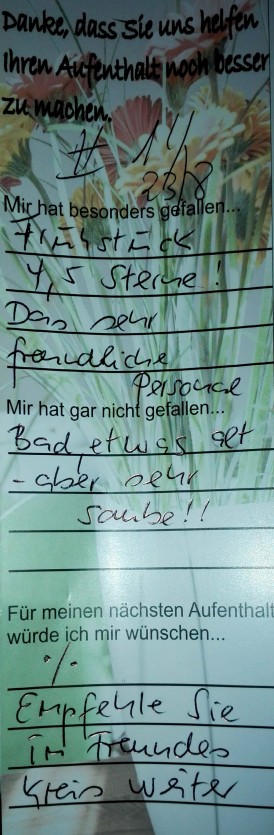 Danke, dass Sie uns helfen
Ihren Aufenthalt noch besser
zu machen.
# 11
23/8
Mir hat besonders gefallen...
Frühstück
4,5 Sterne!
Das sehr
freundliche
Personal
Mir hat gar nicht gefallen...
Bad, etwas alt
- aber sehr
saube!!
Für meinen nächsten Aufenthalt
würde ich mir wünschen...
·/.
Empfehle Sie
im Freundes
Kreis weiter